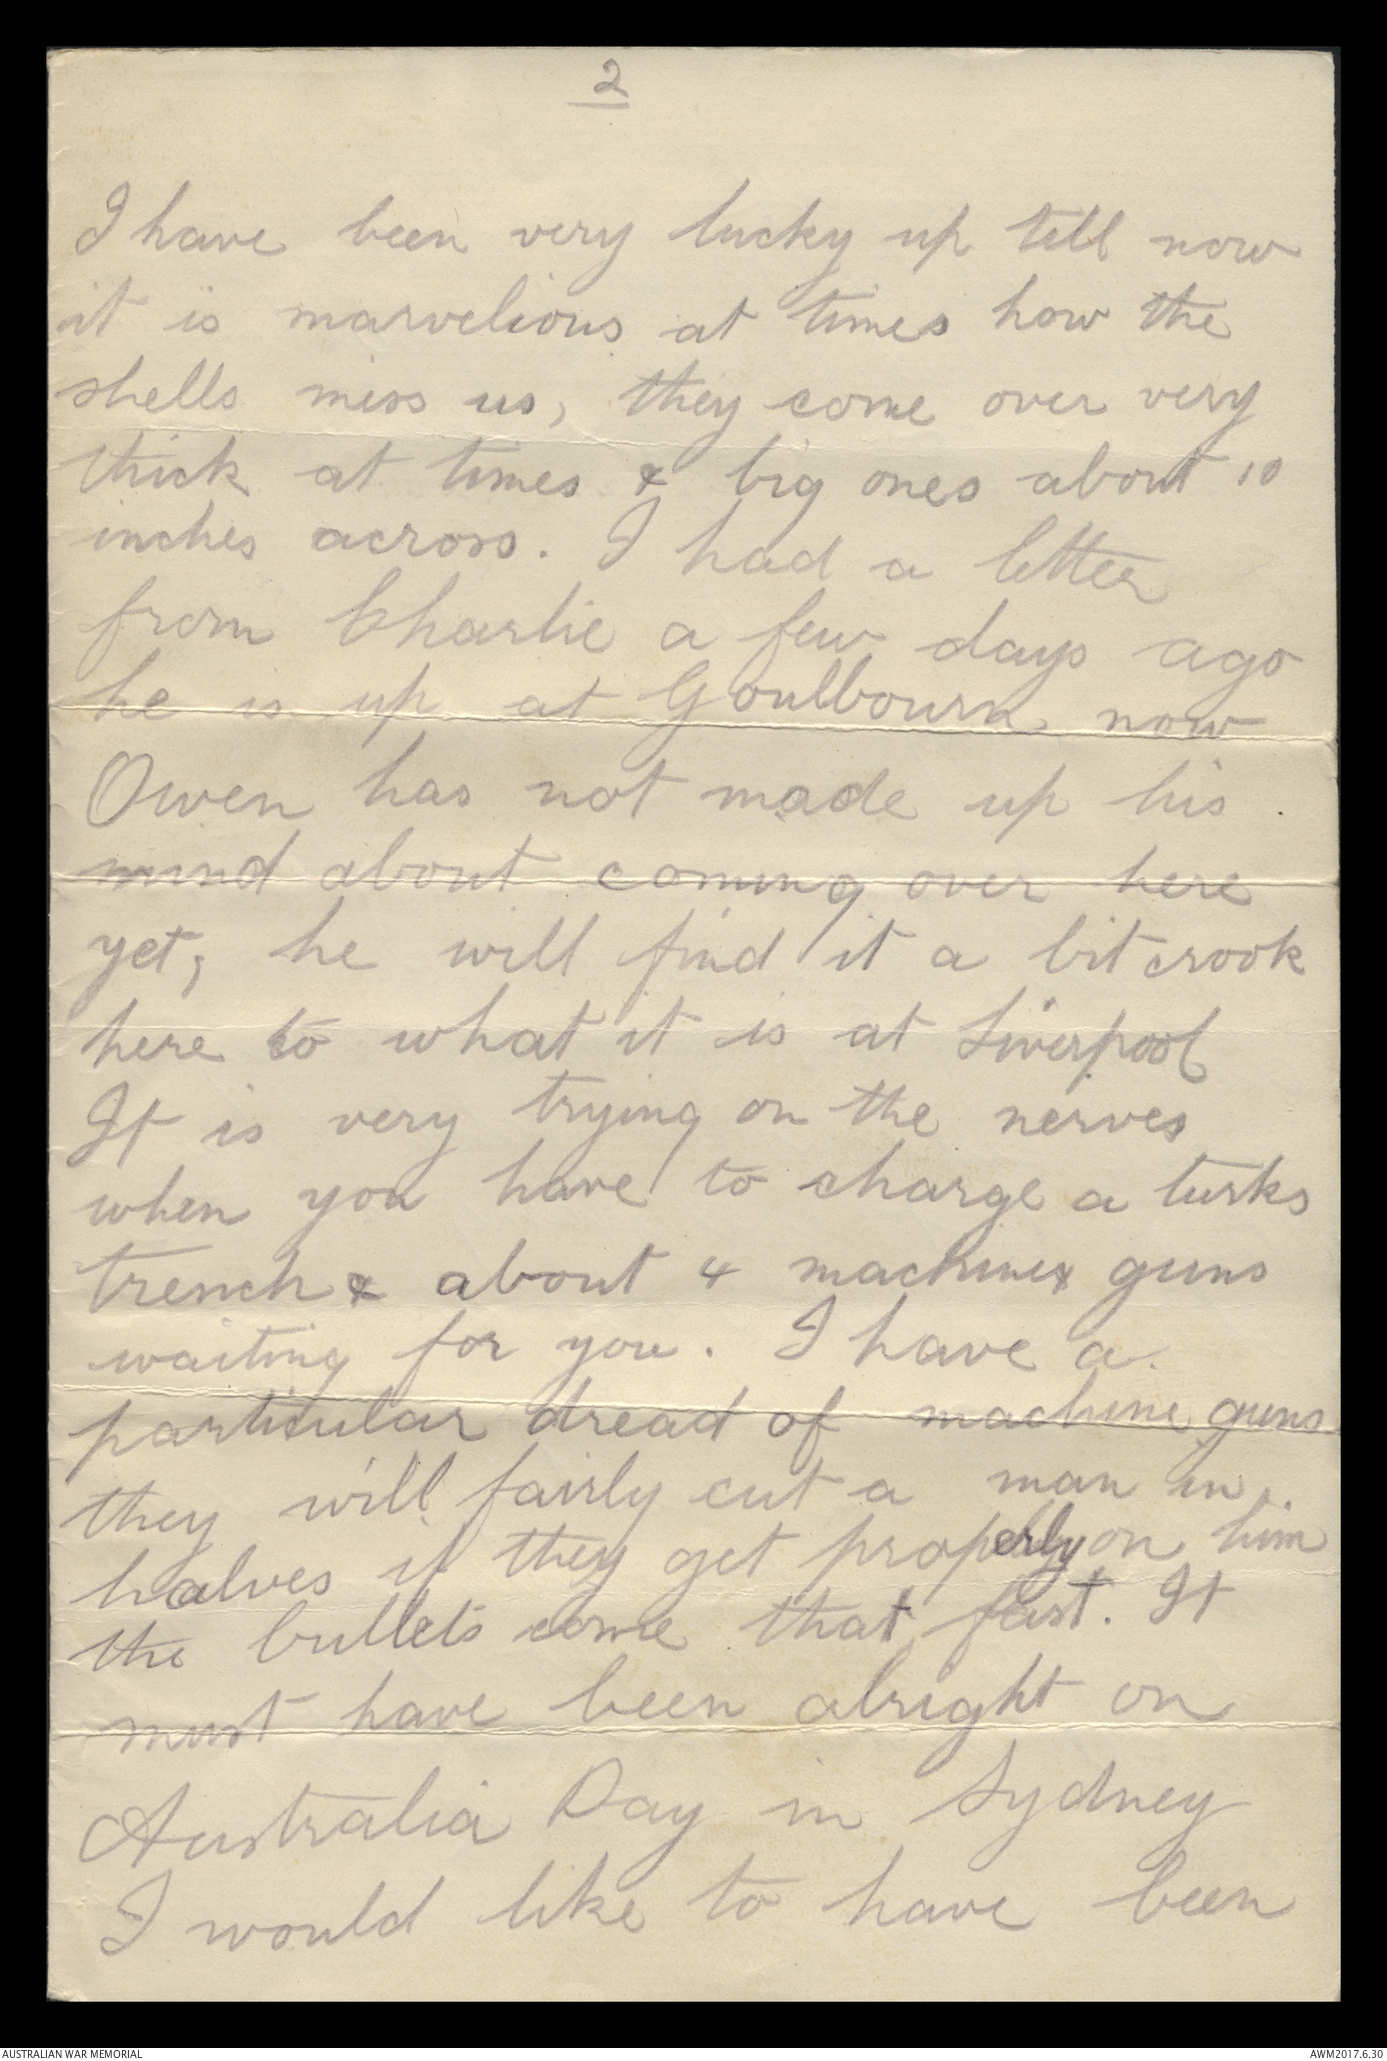 2
I have been very lucky up tell now
it is marvelious at times how the
shells miss us, they come over very
thick at times & big ones about 10
inches across. I had a letter
from Charlie a few days ago
he is up at Goulbourn now
Owen has not made up his
mind about coming over here
yet, he will find it a bit crook
here to what it is at Liverpool
It is very trying on the nerves
when you have to charge a turks
trench & about 4 machines guns
waiting for you. I have a
particular dread of machine guns
they will fairly cut a man in
halves if they get properly on him
the bullets come that fast. It
must have been alright on
Australia Day in Sydney
I would like to have been
AUSTRALIAN WAR MEMORIAL
AWM2017.6.30